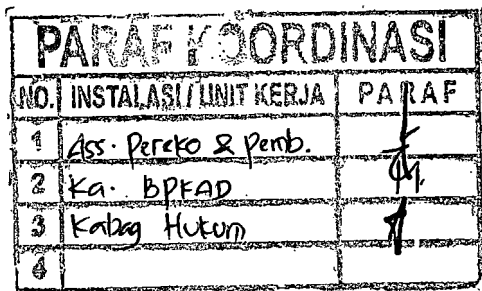 PARAF KOORDINASI
NO. INSTALASI / UNIT KERJA PARAF
1 Ass. Pereko & Pemb.
2 Ka. BPKAD
3 Kabag Hukum
4